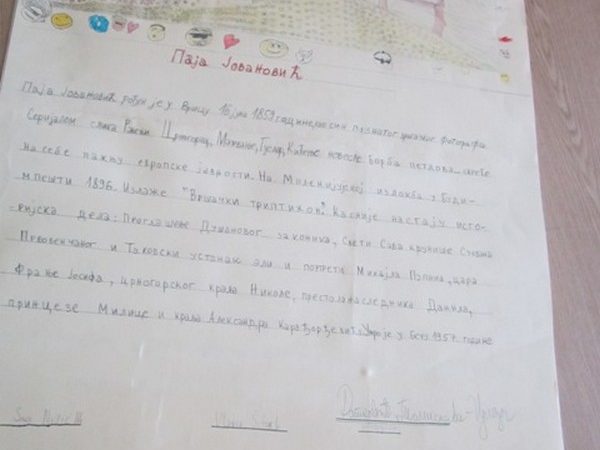 Паја Јовановић
Паја Јовановић рођен је у Вршцу 16 јуна 1859 године као син познатог фотографа
Серијалом слика Рањени Црногорац, Гуслар, Кићење невесте Борба петлова скреће
на себе пажњу европске јавности. На Миленијумској изложби у Буди-
мпешти 1896. Излаже "Вршачки триптихон". Касније настају исто-
ријска дела: Проглашење Душановог законика, Свети Сава крунише Стефана
Првовенчаног и Таковски устанак али и портрети Михајла Пупина, цара
Фрање Јосифа, црногорског краља Николе, престолонаследника Данила,
принцезе Милице и краља Александра Карађорђевића. Умро је у Бечу 1957. године